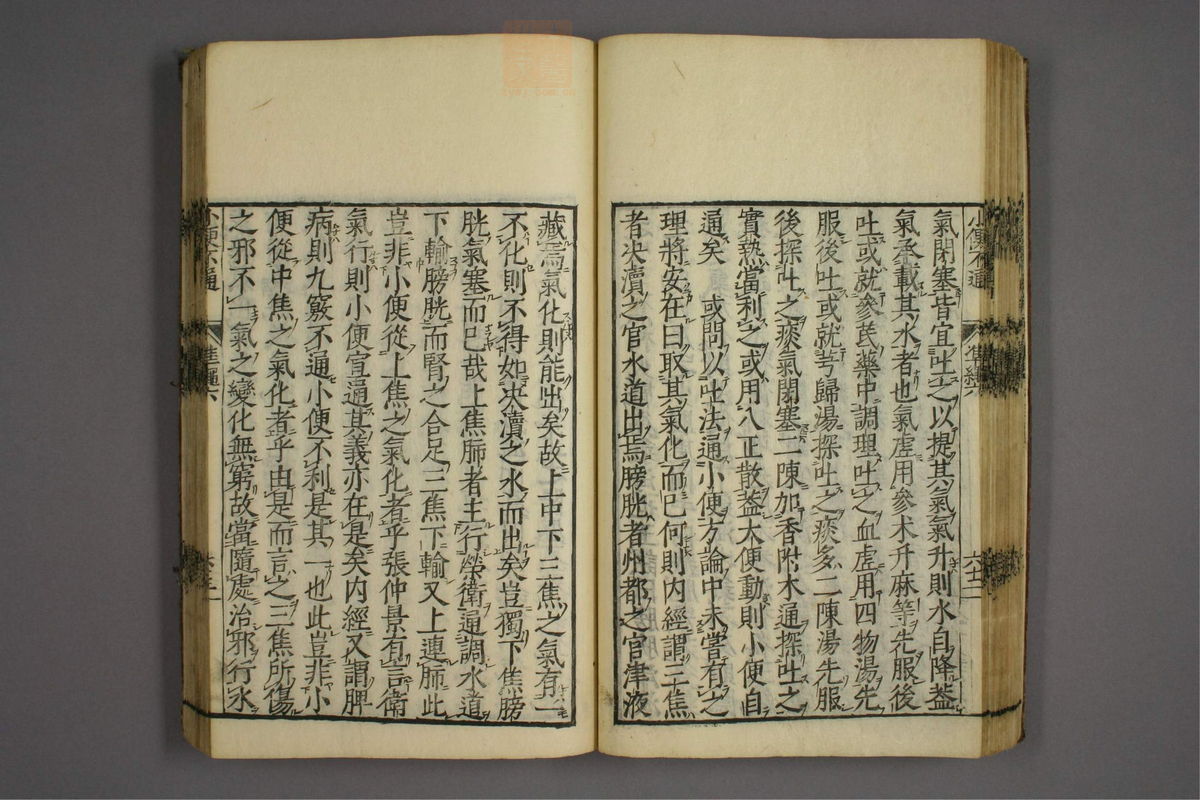 氣閉塞皆宜吐之以提其氣氣升則水自降蓋
氣丞載其水者也氣虛用參朮升麻等先服後
吐或就參芪藥中調理吐之血虛用四物湯先
服後吐或就芎歸湯探吐之痰多二陳湯先服
後探吐之痰氣閉塞二陳加香附木通探吐之
實熱當利之或用八正散蓋大便動則小便自
通矣 或問以吐法通小便方論中未嘗有之
理將安在曰取其氣化而已何則內經謂三焦
者决瀆之官水道出焉膀胱者州都之官津液
藏焉氣化則能出矣故上中下三焦之氣有一
不化則不得如决瀆之水而出矣豈獨下焦膀
胱氣塞而已哉上焦肺者主行榮衛通調水道
下輸膀胱而腎之合足三焦下輸又上連肺此
豈非小便從上焦之氣化者乎張仲景有言衛
氣行則小便宣通其義亦在是矣內經又謂脾
病則九竅不通小便不利是其一也此豈非小
便從中焦之氣化者乎由是而言之三焦所傷
之邪不一氣之變化無窮故當隨處治邪行水
小便不通